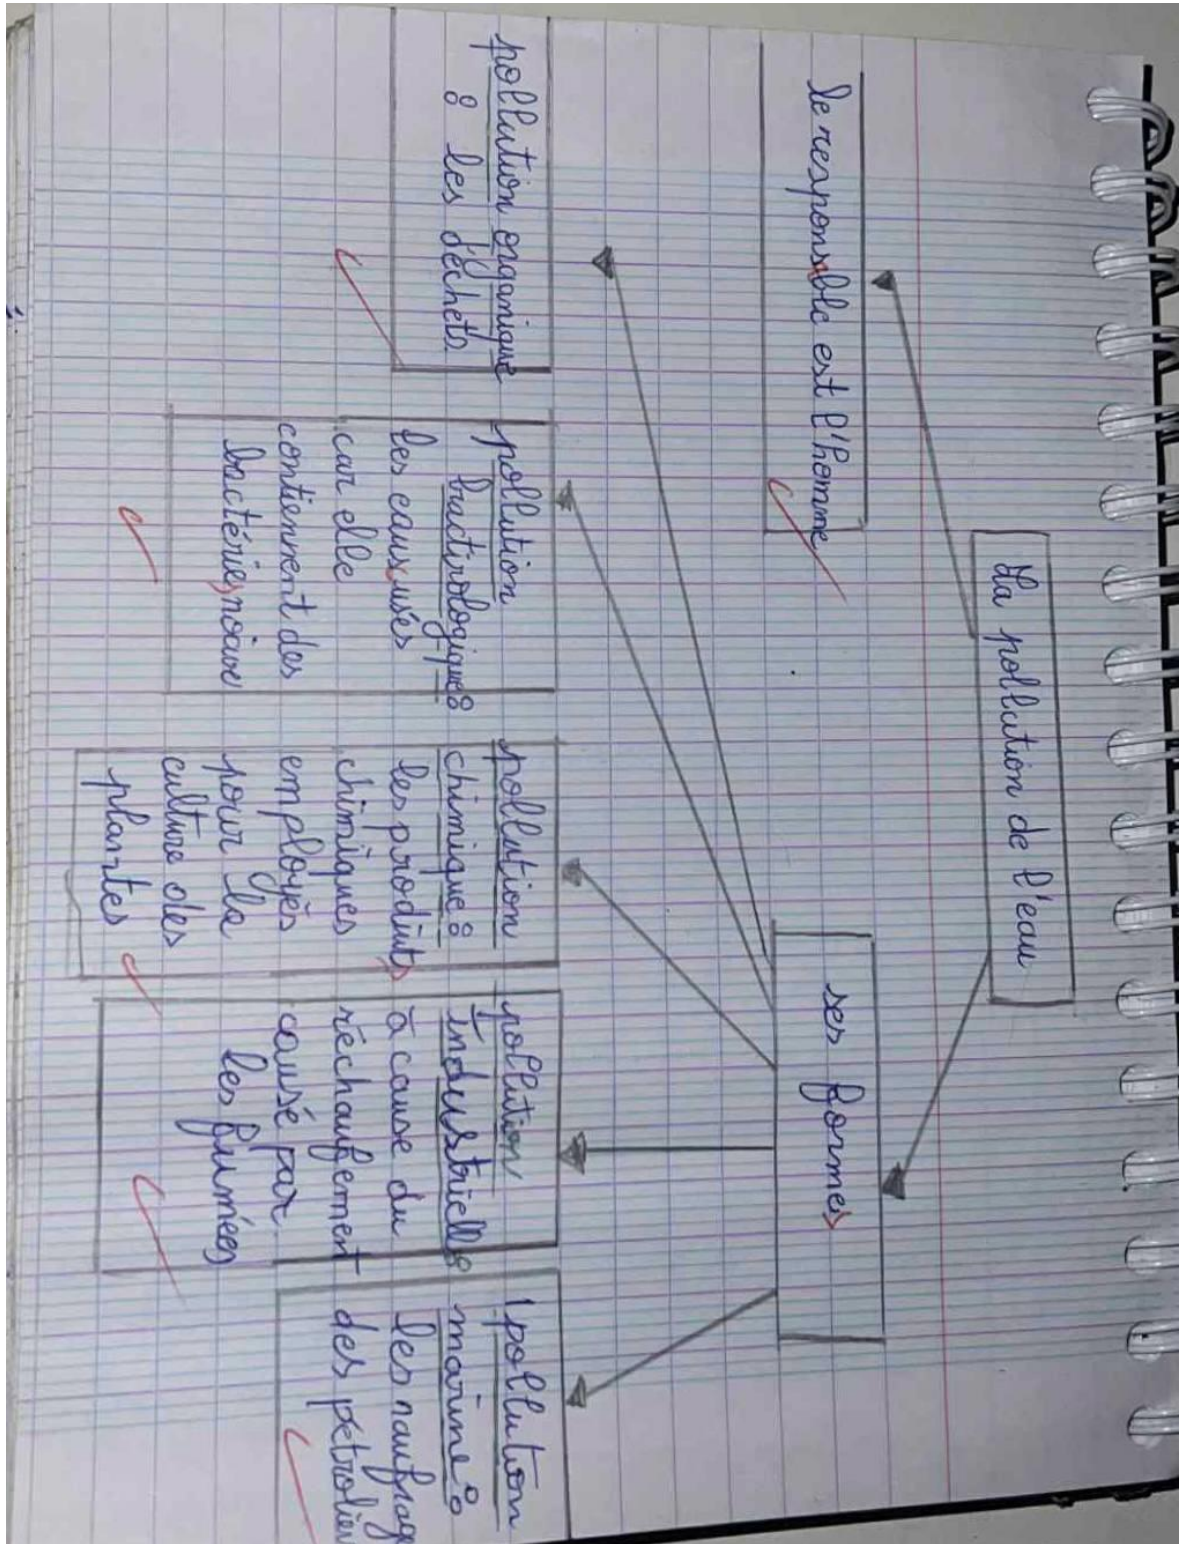 La pollution de l'eau
le responsable est l'homme
ses formes
pollution organique
: les déchets.
pollution
bactirologique:
les eaux usés
car elle
contiennent des
bactéries noive
pollution
chimique:
les produits
chimiques
employés
pour la
culture des
plantes
pollution
industriell:
à cause du
réchaufement
causé par
les fumées
pollution
marine:
les naufrage
des pétrolier